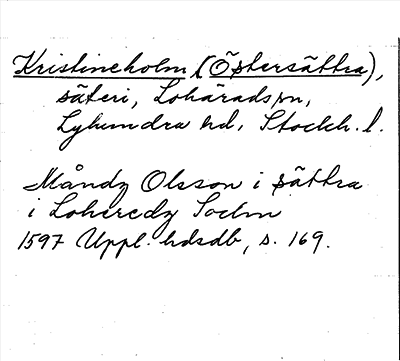 Kristineholm (Östersättra),
säteri, Lohärads sn,
Lyhundra hd, Stockh. l.
Måndz Olsson i sättra
i Loheredz Sochn
1597 Uppl. hdsdb, s. 169.